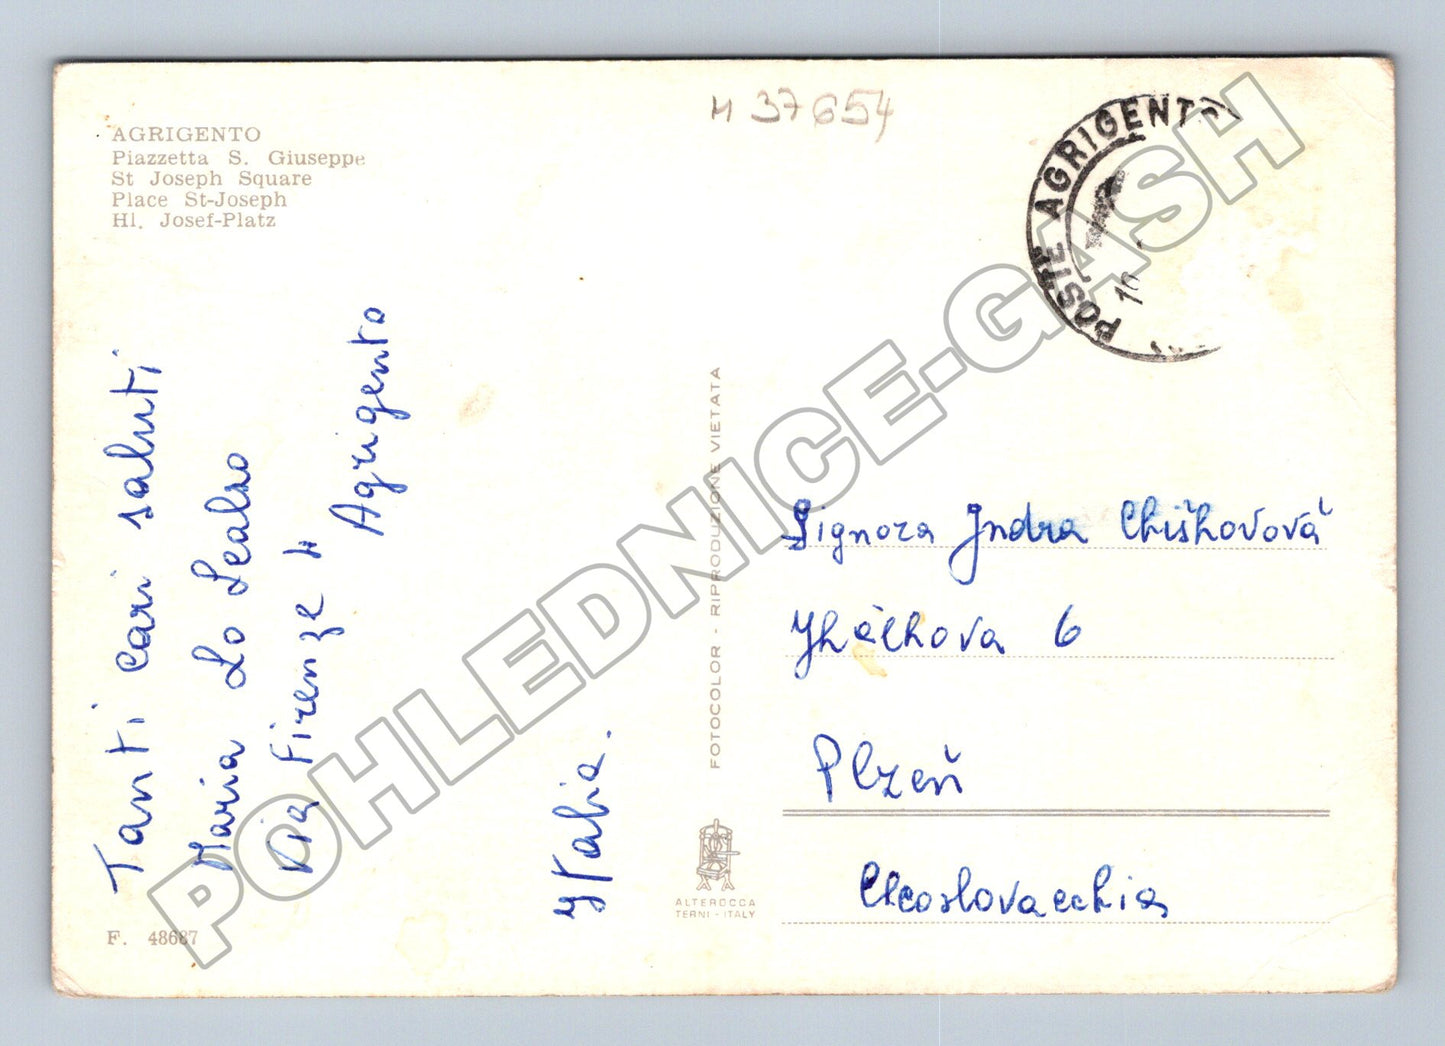 AGRIGENTO
Piazzetta S. Giuseppe
St Joseph Square
Place St-Joseph
Hl. Josef-Platz
M 37654
POSTE AGRIGENTO
Tanti cari saluti
Maria Lo Lealzo
Via Firenze 4
Agrigento
Italia.
FOTOCOLOR - RIPRODUZIONE VIETATA
Signora Jndra Chišhovová
Plzeň
Cecoslovacchia
ALTEROCCA
TERNI - ITALY
F. 48687
POHLEDNICE-GASH